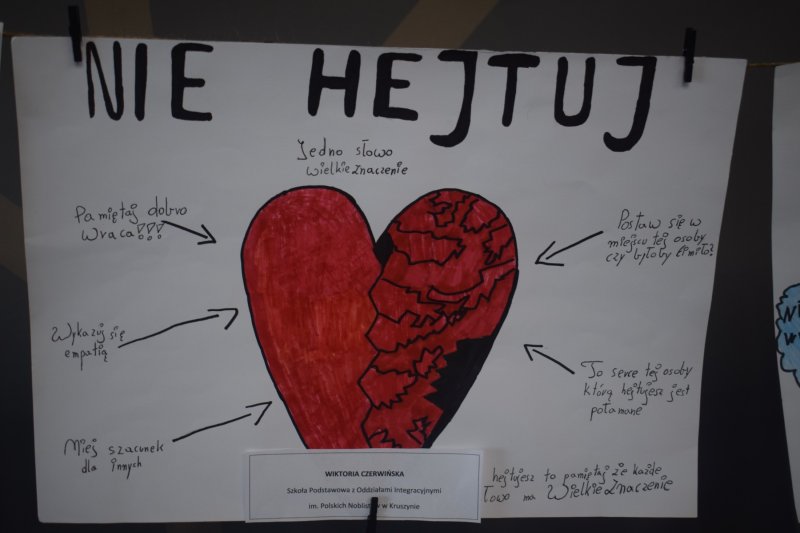 NIE HEJTUJ
Jedno słowo
wielkie znaczenie
Pamiętaj dobro
wraca!!!
Postaw się w
miejscu tej osoby
czy byłoby Ci miło?
Wykazuj się
empatią
To serce tej osoby
którą hejtujesz jest
połamane
Miej szacunek
dla innych
hejtujesz to pamiętaj że każde
ma Wielkie Znaczenie
WIKTORIA CZERWIŃSKA
Szkoła Podstawowa z Oddziałami Integracyjnymi
im. Polskich Noblistów w Kruszynie